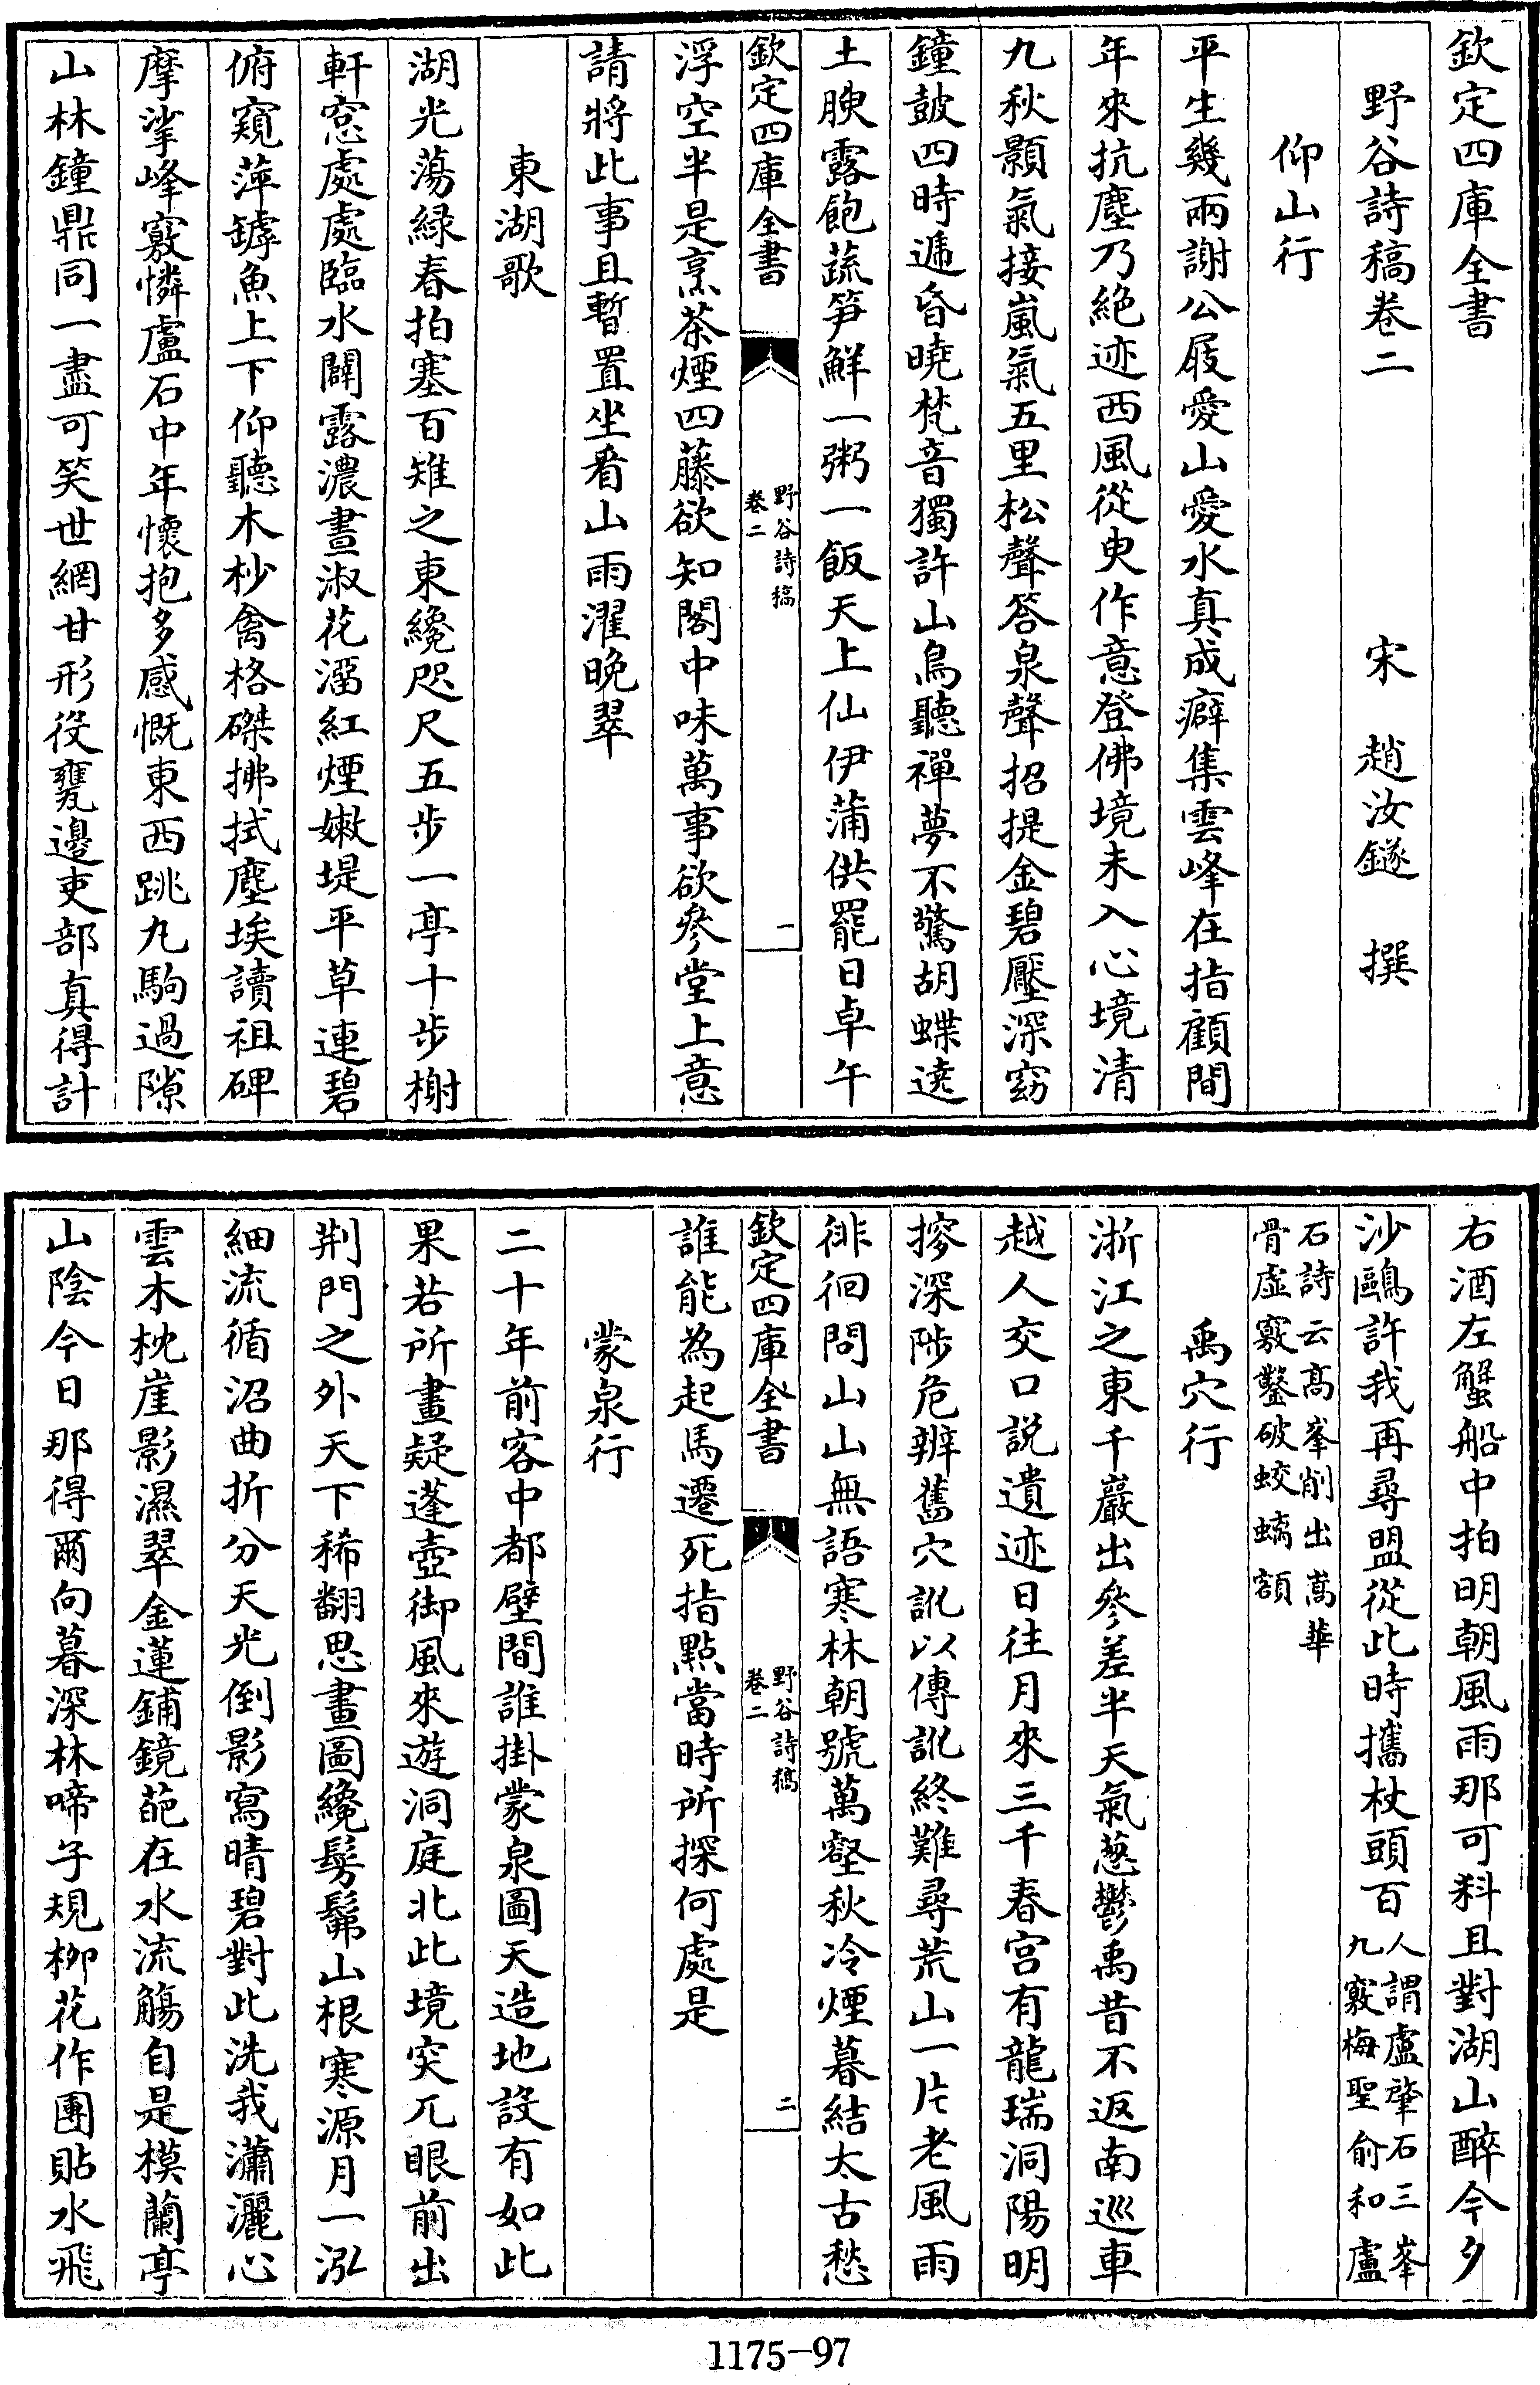 欽定四庫全書
野谷詩稿卷二
宋　趙汝鐩　撰
仰山行
平生幾兩謝公屐愛山愛水真成癖集雲峰在指顧間
年來抗塵乃絶迹西風從臾作意登佛境未入心境清
九秋顥氣接嵐氣五里松聲答泉聲招提金碧壓深窈
鐘鼓四時遞昏曉梵音獨許山鳥聽禪夢不驚胡蝶遶
土腴露飽蔬笋鮮一粥一飯天上仙伊蒲供罷日卓午
欽定四庫全書
野谷詩稿
卷二
一
浮空半是烹茶煙四藤欲知閣中味萬事欲參堂上意
請將此事且暫置坐看山雨濯晚翠
東湖歌
湖光蕩緑春拍塞百雉之東纔咫尺五步一亭十步榭
軒窓處處臨水闢露濃晝淑花溜紅煙嫩堤平草連碧
俯窺萍罅魚上下仰聽木杪禽格磔拂拭塵埃讀祖碑
摩挲峰竅憐盧石中年懷抱多感慨東西跳丸駒過隙
山林鐘鼎同一盡可笑世網甘形役甕邊吏部真得計
右酒左蟹船中拍明朝風雨那可料且對湖山醉今夕
沙鷗許我再尋盟從此時攜杖頭百
人謂盧肇石三峯
九竅梅聖俞和盧
石詩云高峯削出嵩華
骨虚竅鑿破蛟螭額
禹穴行
浙江之東千巖出參差半天氣葱鬱禹昔不返南巡車
越人交口説遺迹日往月來三千春宫有龍瑞洞陽明
摉深陟危辨舊穴訛以傳訛終難尋荒山一片老風雨
徘徊問山山無語寒林朝號萬壑秋冷煙暮結太古愁
欽定四庫全書
野谷詩稿
卷二
二
誰能為起馬遷死指點當時所探何處是
蒙泉行
二十年前客中都壁間誰掛蒙泉圖天造地設有如此
果若所畫疑蓬壺御風來遊洞庭北此境突兀眼前出
荆門之外天下稀翻思畫圖纔髣髴山根寒源月一泓
細流循沼曲折分天光倒影寫晴碧對此洗我瀟灑心
雲木枕崖影濕翠金蓮鋪鏡葩在水流觴自是模蘭亭
山陰今日那得爾向暮深林啼子規柳花作團貼水飛
1175-97